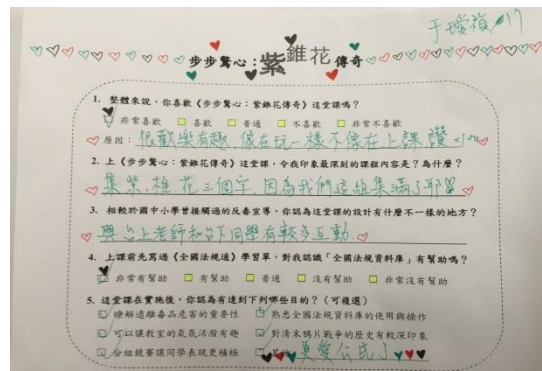 于瑩禎 17
步步驚心:紫錐花傳奇
1. 整體來說,你喜歡《步步驚心:紫錐花傳奇》這堂課嗎?
非常喜歡 喜歡 普通 不喜歡 非常不喜歡
原因:很歡樂有趣,像在玩一樣不像在上課 讚 x100
2. 上《步步驚心:紫錐花傳奇》這堂課,令我印象最深刻的課程內容是?為什麼?
集紫、椎、花三個字,因為我們這組集滿了耶
3. 相較於國中小學曾接觸過的反毒宣導,你認為這堂課的設計有什麼不一樣的地方?
與台上老師和台下同學有較多互動
4. 上課前先寫過《全國法規通》學習單,對我認識「全國法規資料庫」有幫助嗎?
非常有幫助 有幫助 普通 沒有幫助 非常沒有幫助
5. 這堂課在實施後,你認為有達到下列哪些目的?(可複選)
瞭解遠離毒品危害的重要性 熟悉全國法規資料庫的使用與操作
可以讓教室的氣氛活潑有趣 對清末鴉片戰爭的歷史有較深印象
分組競賽讓同學表現更積極 其他 更愛公民了